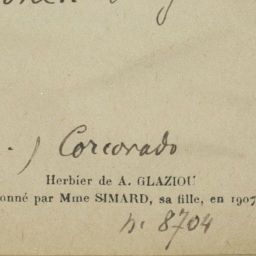 .) Corcovado
Herbier de A. GLAZIOU
onné par Mme SIMARD, sa fille, en 1907
n. 8704